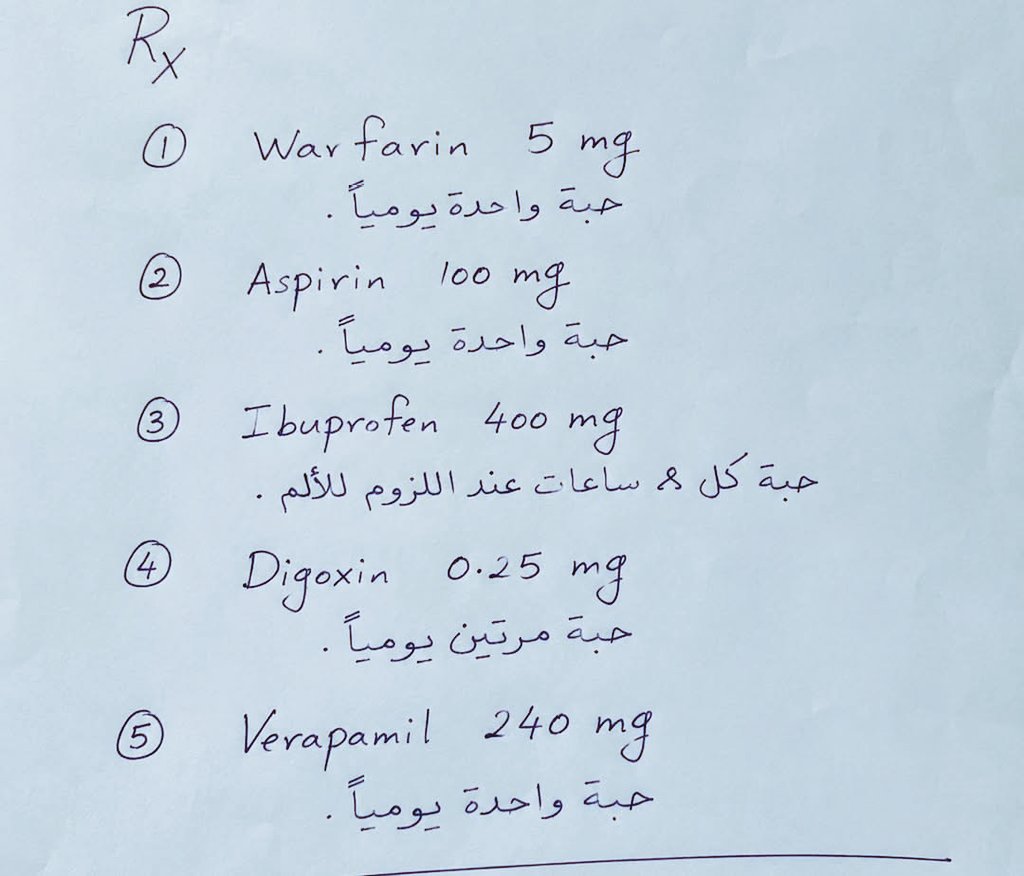 Rx
① Warfarin 5 mg
حبة واحدة يومياً .
② Aspirin 100 mg
حبة واحدة يومياً .
③ Ibuprofen 400 mg
حبة كل 8 ساعات عند اللزوم للألم .
④ Digoxin 0.25 mg
حبة مرتين يومياً .
⑤ Verapamil 240 mg
حبة واحدة يومياً .